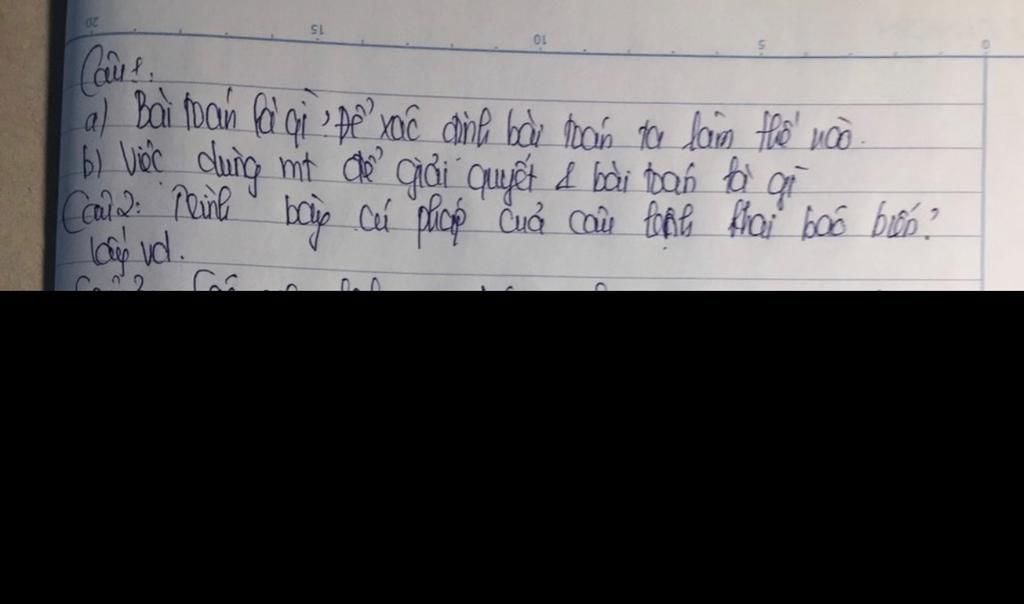 20 15 10 5 0
Câu 1.
a) Bài toán là gì, Để xác định bài toán ta làm thế nào.
b) Việc dùng mt để giải quyết 1 bài toán là gì
Câu 2: Trình bày cú pháp của câu lệnh khai báo biến?
lấy vd.